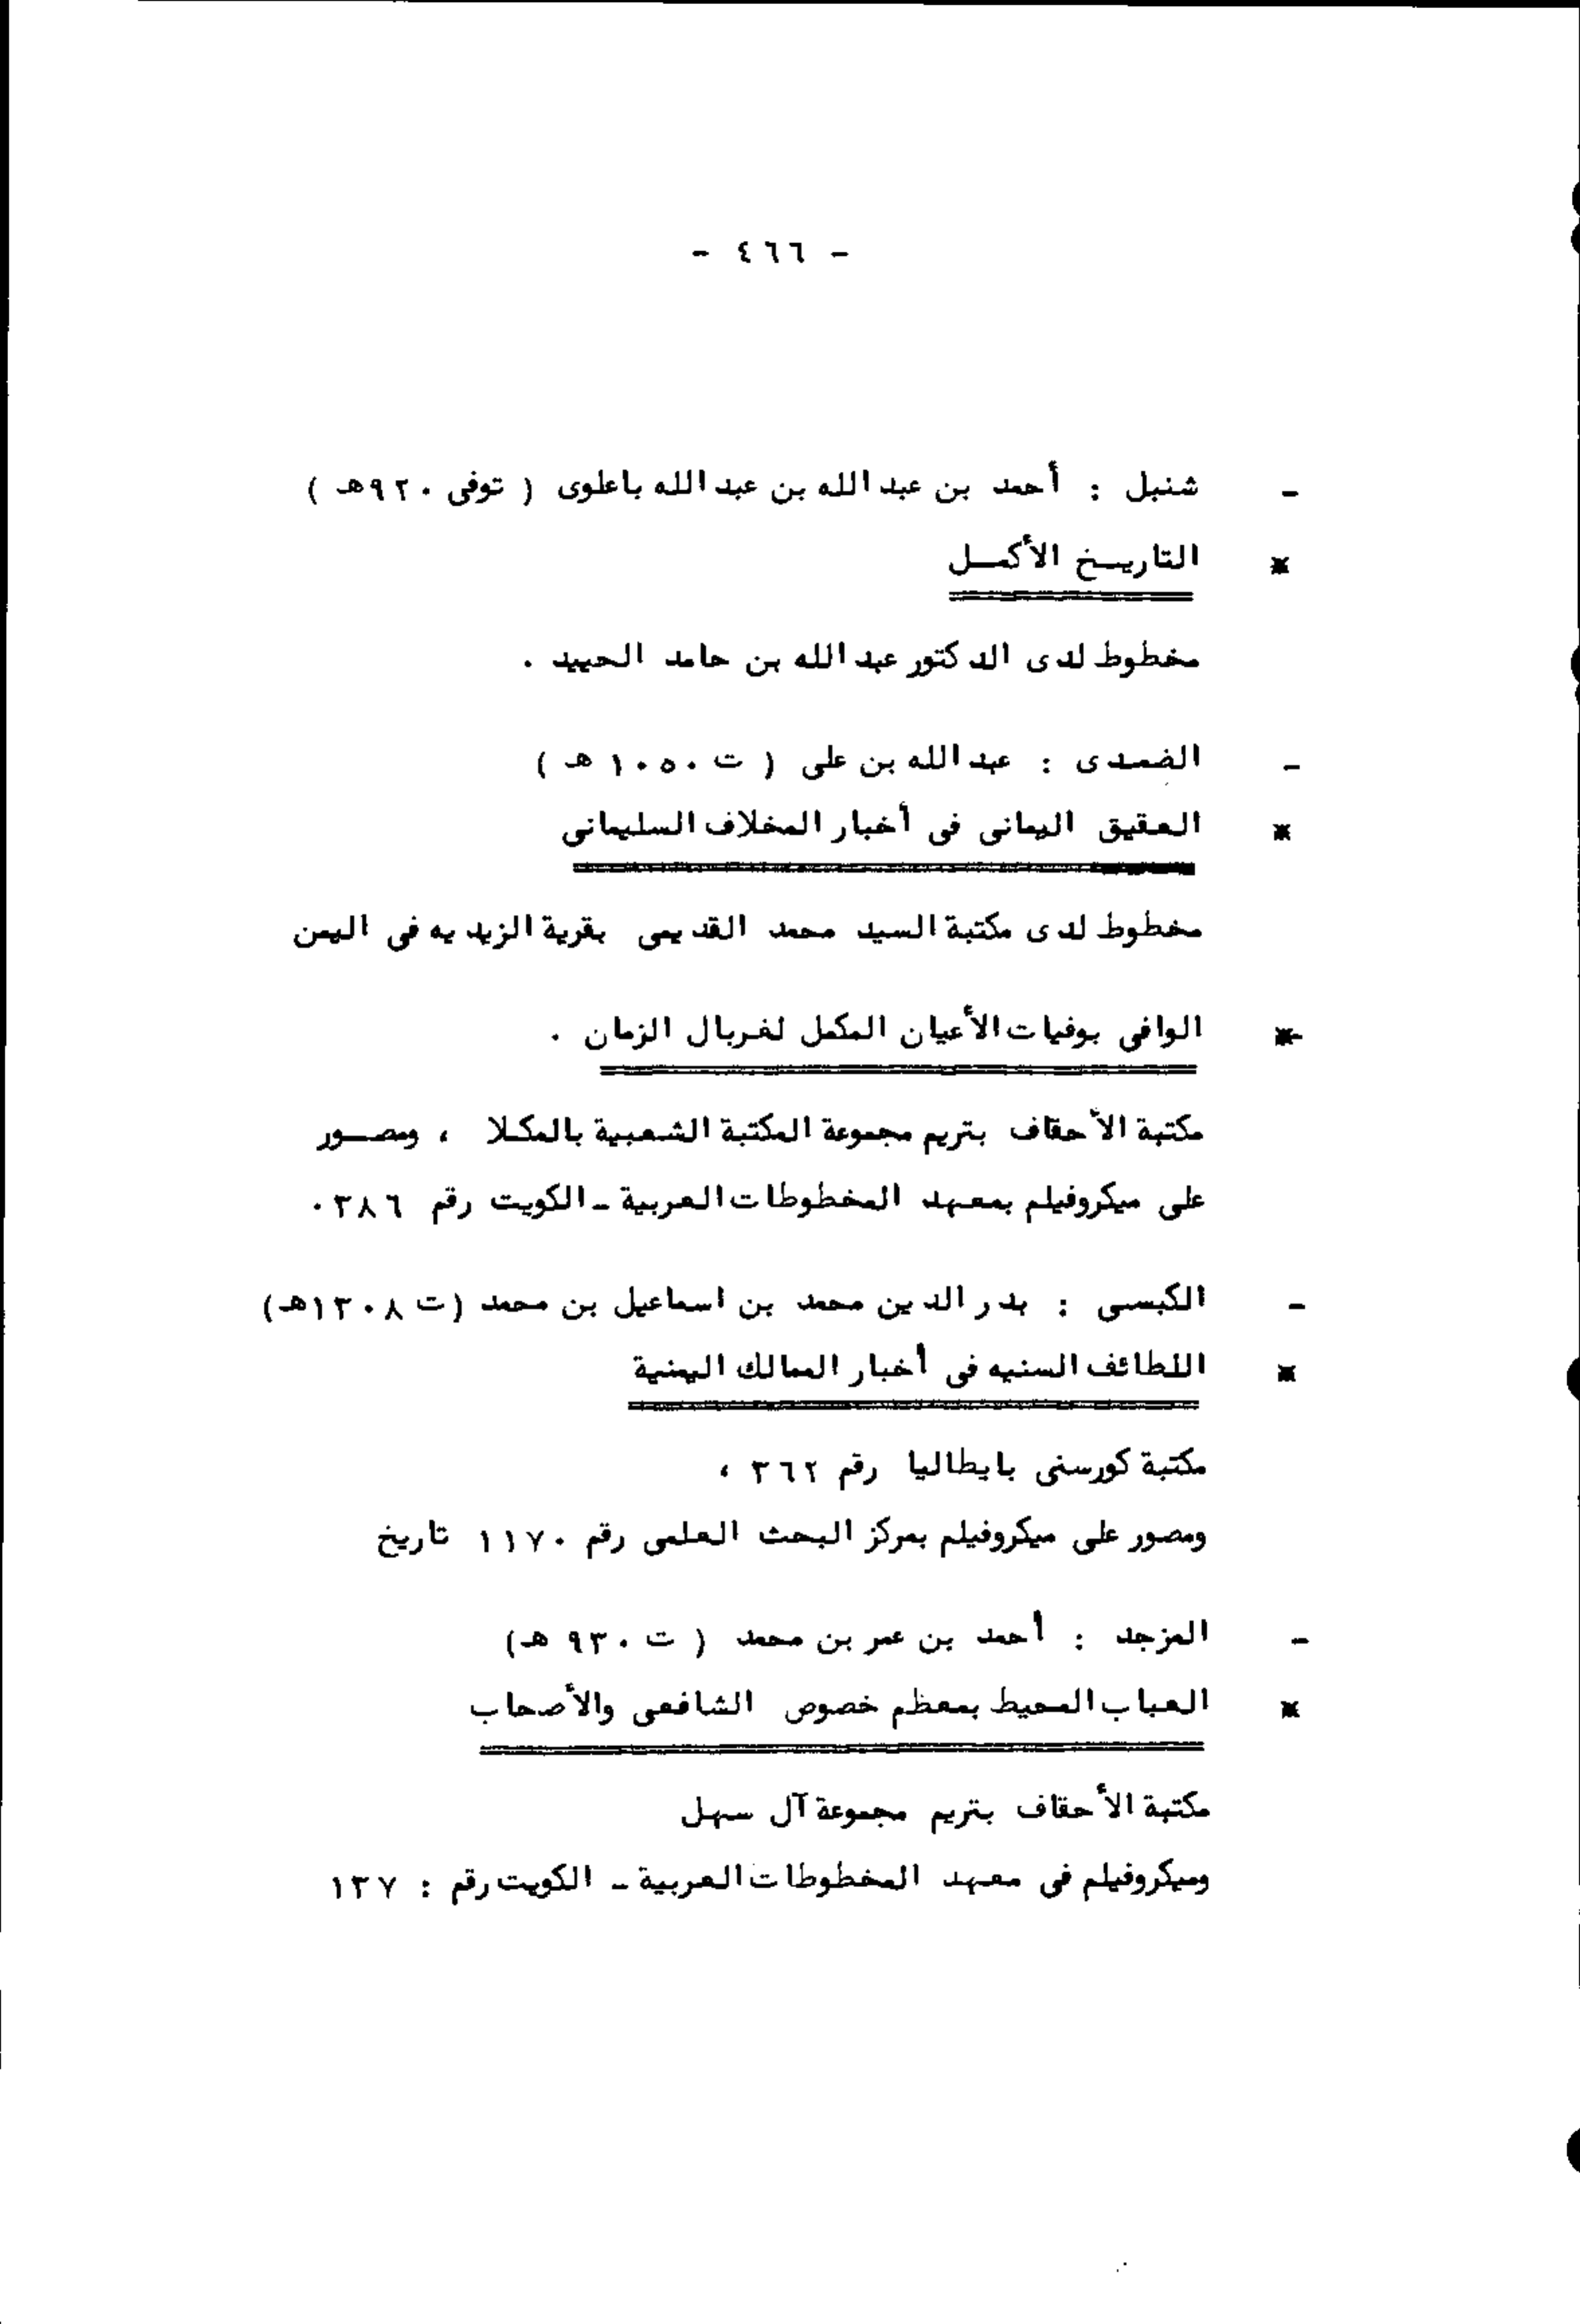 - ٤٦٦ -
- شنبل : أحمد بن عبد الله بن عبد الله باعلوى ( توفى ٩٢٠هـ )
* التاريخ الأكمل
مخطوط لدى الدكتور عبد الله بن حامد الحييد .
- الضمدى : عبد الله بن على ( ت ١٠٥٠ هـ )
* العقيق اليمانى فى أخبار المخلاف السليمانى
مخطوط لدى مكتبة السيد محمد القديمى بقرية الزيديه فى اليمن
* الوافى بوفيات الأعيان المكمل لغربال الزمان .
مكتبة الأحقاف بتريم مجموعة المكتبة الشعبية بالمكلا ، ومصور
على ميكروفيلم بمعهد المخطوطات العربية - الكويت رقم ٣٨٦ .
- الكبسى : بدر الدين محمد بن اسماعيل بن محمد (ت ١٣٠٨هـ)
* اللطائف السنيه فى أخبار الممالك اليمنية
مكتبة كورسنى بايطاليا رقم ٣٦٢ ،
ومصور على ميكروفيلم بمركز البحث العلمى رقم ١١٧٠ تاريخ
- المزجد : أحمد بن عمر بن محمد ( ت ٩٣٠ هـ)
* العباب المحيط بمعظم خصوص الشافعى والأصحاب
مكتبة الأحقاف بتريم مجموعة آل سهل
وميكروفيلم فى معهد المخطوطات العربية - الكويت رقم : ١٣٧